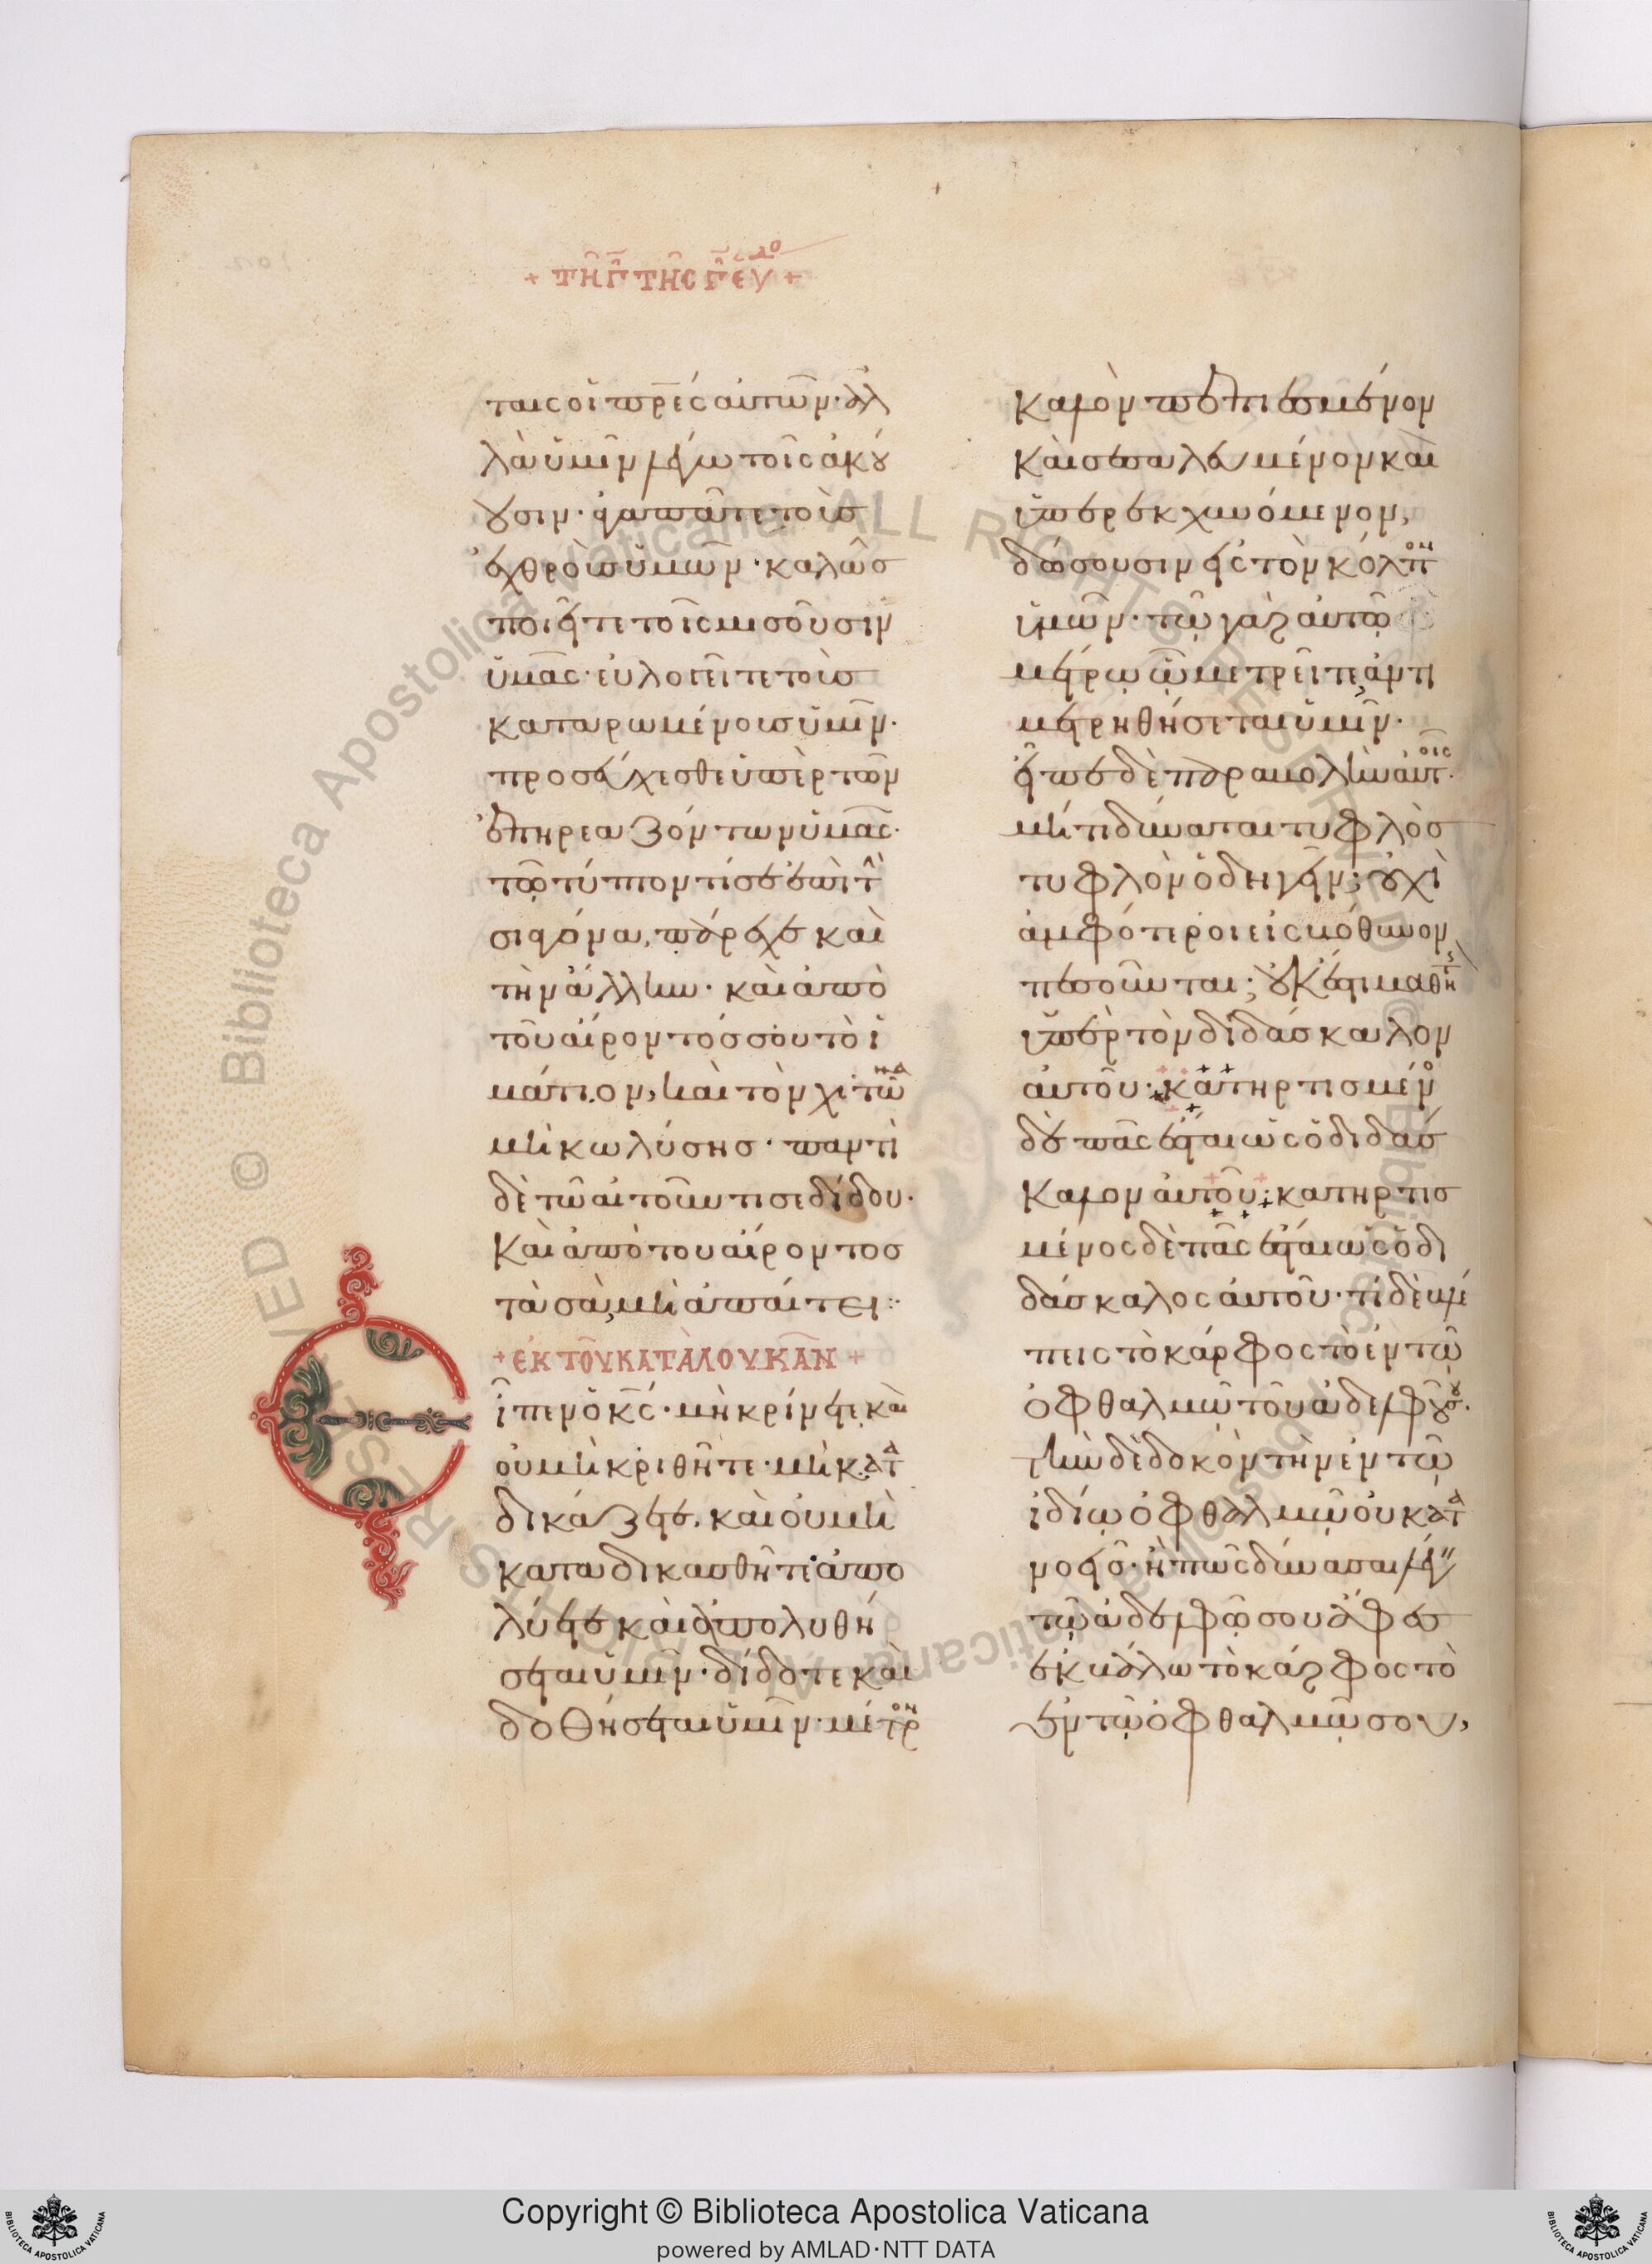 + τῇ γ̅ τῆς γ̅ ἑβδο +
ταις οἱ π̅ρ̅ε̅ς αὐτῶν· ἀλ
λὰ ὑμῖν λέγω τοῖς ἀκού
ουσιν· ἀγαπᾶτε τοὺς
ἐχθροὺς ὑμῶν· καλῶς
ποιεῖτε τοῖς μισοῦσιν
ὑμᾶς· εὐλογεῖτε τοὺς
καταρωμένους ὑμῖν·
προσεύχεσθε ὑπὲρ τῶν
ἐπηρεαζόντων ὑμᾶς·
τῷ τύπτοντί σε ἐπὶ τὴ
σιαγόνα, πάρεχε καὶ
τὴν ἄλλην· καὶ ἀπὸ
τοῦ αἴροντός σου τὸ ἱ
μάτιον, καὶ τὸν χιτῶνα
μὴ κωλύσης· παντὶ
δὲ τῶ αἰτοῦντι σε δίδου·
καὶ ἀπὸ του αἴροντος
τὰ σὰ, μὴ ἀπαίτει:·
+ ἐκ τοῦ κατὰ λουκᾶν +
Εἶπεν ὁ κ̅ς· μὴ κρίνετε, καὶ
οὐ μὴ κριθῆτε· μὴ κατα
δικάζετε, καὶ οὐ μὴ
καταδικασθῆτε· ἀπο
λύετε καὶ ἀπολυθή
σεσθαι ὑμῖν· δίδοτε καὶ
δοθήσεται ὑμῖν· μέτρον
καλὸν πεπιεσμένον
καὶ σεσαλευμένον καὶ
ὑπερεκχυνόμενον,
δώσουσιν εἰς τὸν κόλπον
ὑμῶν· τῷ γὰρ αὐτῷ
μέτρῳ ᾧ μετρεῖτε, ἀντι
μετρηθήσεται ὑμῖν·
εἶπε δὲ παραβολὴν αὐτοῖς·
μήτι δύναται τυφλὸς
τυφλὸν ὁδηγεῖν; οὐχὶ
ἀμφότεροι εἰς βόθυνον
πεσοῦνται; οὐκ ἔστι μαθητὴς
ὑπὲρ τὸν διδάσκαλον
αὐτοῦ· κατηρτισμένο
δὲ πᾶς ἔσται ὡς ὁ διδάσ
καλον αὐτοῦ: κατηρτισ
μένος δὲ πᾶς ἔσται ὡς ὁ δι
δάσκαλος αὐτοῦ· τί δὲ βλέ
πεις τὸ κάρφος τὸ ἐν τῷ
ὀφθαλμῷ τοῦ ἀδελφοῦ σου·
τὴν δὲ δοκὸν τὴν ἐν τῷ
ἰδίῳ ὀφθαλμῷ οὐ κατα
νοεῖς· ἢ πῶς δύνασαι λέγειν
τῷ ἀδελφῷ σου ἄφες
ἐκβάλω τὸ κάρφος τὸ
ἐν τῷ ὀφθαλμῷ σου,
Copyright © Biblioteca Apostolica Vaticana
powered by AMLAD·NTT DATA